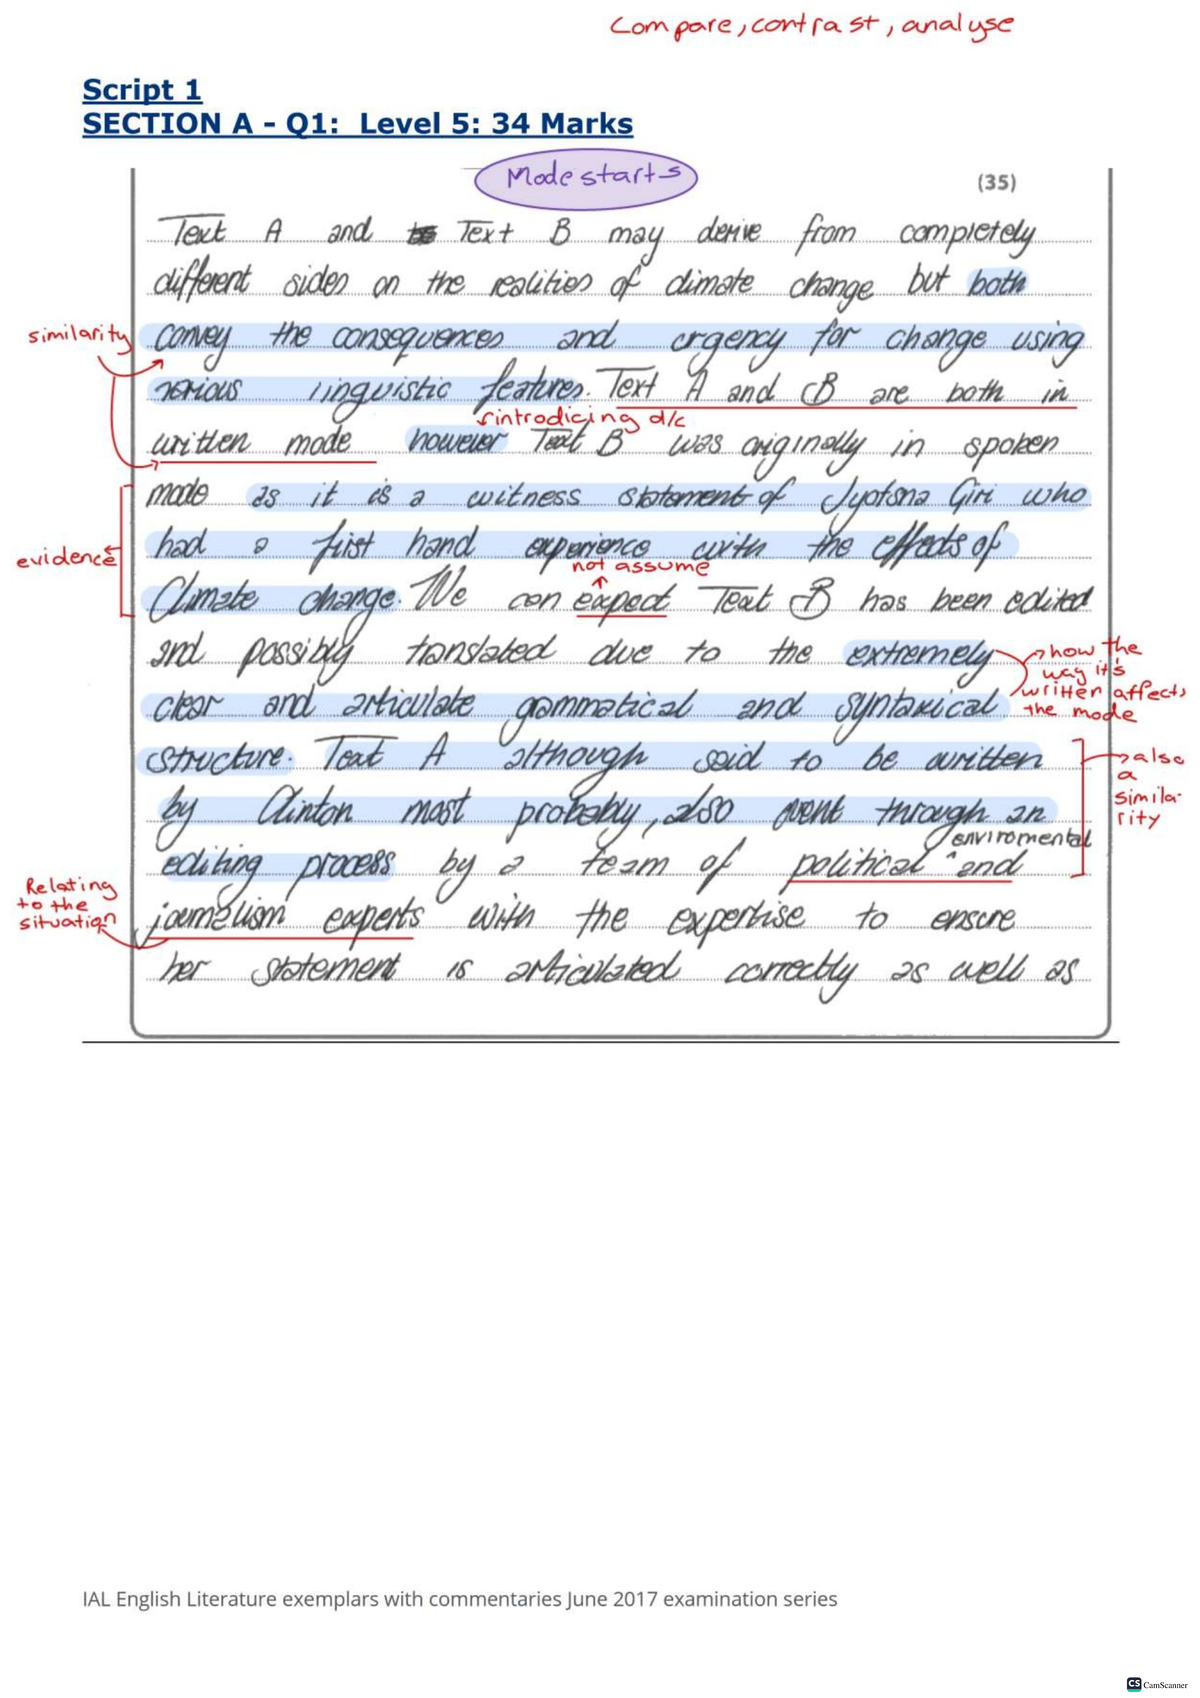 Compare, contrast, analyse
Script 1
SECTION A - Q1: Level 5: 34 Marks
Mode starts
(35)
Text A and Text B may derive from completely
different sides on the realities of climate change but both
similarity
convey the consequences and urgency for change using
various linguistic features. Text A and B are both in
introdicing d/c
written mode however Text B was originally in spoken
mode as it is a witness statement of Jyotsna Giri who
evidence
had a first hand experience with the effects of
not assume
Climate change. We can expect Text B has been edited
and possibly translated due to the extremely
how the
way it's
written affects
the mode
clear and articulate grammatical and syntaxical
structure. Text A although said to be written
also
a
simila-
rity
by Clinton most probably, also went through an
enviromental
editing process by a team of political ^ and
Relating
to the
situation
journalism experts with the expertise to ensure
her statement is articulated correctly as well as
IAL English Literature exemplars with commentaries June 2017 examination series
CS CamScanner